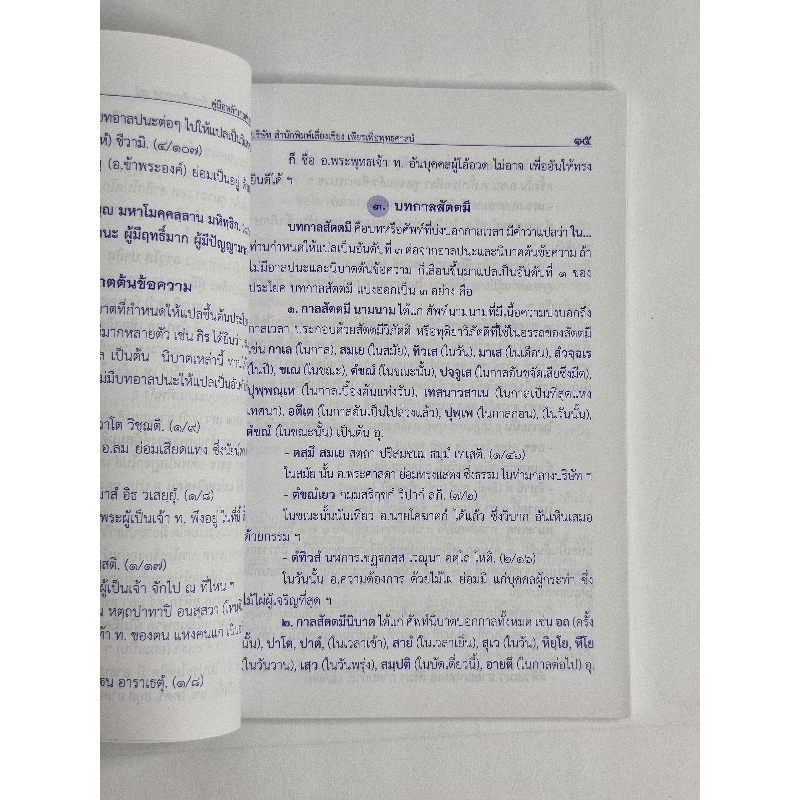 คู่มือหลัก
บทอาลปนะต่อๆ ไปให้แปลเป็น
ชีวามิ. (๔/๑๐๗)
(อ.ข้าพระองค์) ย่อมเป็นอยู่
มหาโมคฺคลฺลาน มหิทฺธิก.
ผู้มีฤทธิ์มาก ผู้มีปัญญา
บาตต้นข้อความ
บาตที่กำหนดให้แปลขึ้นต้น
มากหลายตัว เช่น กิร ได้ยินว่า,
เป็นต้น นิบาตเหล่านี้
ไม่มีบทอาลปนะให้แปลเป็น
วาโต วิชฺฌติ. (๑/๙)
อ.ลม ย่อมเสียดแทง ซึ่ง
มาสํ อิธ วเสยฺยุํ. (๑/๘)
พระผู้เป็นเจ้า ท. พึงอยู่ ในที่นี้
สติ. (๑/๑๗)
ผู้เป็นเจ้า จักไป ณ ที่ไหน ฯ
หตฺถปาทาปิ อนสฺสวา
ท. ของตน แห่งคนแก่
อาราเธตุํ. (๑/๘)
บริษัท สำนักพิมพ์เลี่ยงเชียง เพียรเพื่อพุทธศาสน์ ๑๕
ก็ ชื่อ อ.พระพุทธเจ้า ท. อันบุคคลผู้โอ้อวด ไม่อาจ เพื่ออันให้ทรง
ยินดีได้ ฯ
๓. บทกาลสัตตมี
บทกาลสัตตมี คือบทหรือศัพท์ที่บ่งบอกกาลเวลา มีคำว่าแปลว่า ใน...
ท่านกำหนดให้แปลเป็นอันดับที่ ๓ ต่อจากอาลปนะและนิบาตต้นข้อความ ถ้า
ไม่มีอาลปนะและนิบาตต้นข้อความ ก็เลื่อนขึ้นมาแปลเป็นอันดับที่ ๑ ของ
ประโยค บทกาลสัตตมี แบ่งออกเป็น ๓ อย่าง คือ
๑. กาลสัตตมี นามนาม ได้แก่ ศัพท์นามนามที่มีเนื้อความบ่งบอกถึง
กาลเวลา ประกอบด้วยสัตตมีวิภัตติ หรือทุติยาวิภัตติที่ใช้ในอรรถของสัตตมี
เช่น กาเล (ในกาล), สมเย (ในสมัย), ทิวเส (ในวัน), มาเส (ในเดือน), สํวจฺฉเร
(ในปี), ขเณ (ในขณะ), ตํขณํ (ในขณะนั้น), ปจฺจูเส (ในกาลอันขจัดเสียซึ่งมืด),
ปุพฺพณฺเห (ในกาลเบื้องต้นแห่งวัน), เทสนาวสาเน (ในกาลเป็นที่สุดแห่ง
เทศนา), อตีเต (ในกาลอันเป็นไปล่วงแล้ว), ปุพฺเพ (ในกาลก่อน), (ในวันนั้น),
ตํขณํ (ในขณะนั้น) เป็นต้น อุ.
- ตสฺมึ สมเย สตฺถา ปริสมชฺเฌ ธมฺมํ เทเสติ. (๑/๔๖)
ในสมัย นั้น อ.พระศาสดา ย่อมทรงแสดง ซึ่งธรรม ในท่ามกลางบริษัท ฯ
- ตํขณํเยว กมฺมสริกฺขกํ วิปากํ ลภิ. (๗/๒)
ในขณะนั้นนั่นเทียว อ.นายโคฆาตก์ ได้แล้ว ซึ่งวิบาก อันเห็นเสมอ
ด้วยกรรม ฯ
- ตํทิวสํ อตฺโถ โหติ. (๒/๑๖)
ในวันนั้น อ.ความต้องการ ด้วยไม้ไผ่ ย่อมมี แก่บุคคลผู้กระทำ ซึ่ง
ไม้ไผ่ผู้เจริญที่สุด ฯ
๒. กาลสัตตมีนิบาต ได้แก่ ศัพท์นิบาตบอกกาลทั้งหมด เช่น อถ (ครั้ง
นั้น), ปาโต, ปาตํ, (ในเวลาเช้า), สายํ (ในเวลาเย็น), สุเว (ในวัน), หิยฺโย, หีโย
(ในวันวาน), เสฺว (ในวันพรุ่ง), สมฺปติ (ในบัดเดี๋ยวนี้), อายตึ (ในกาลต่อไป) อุ.